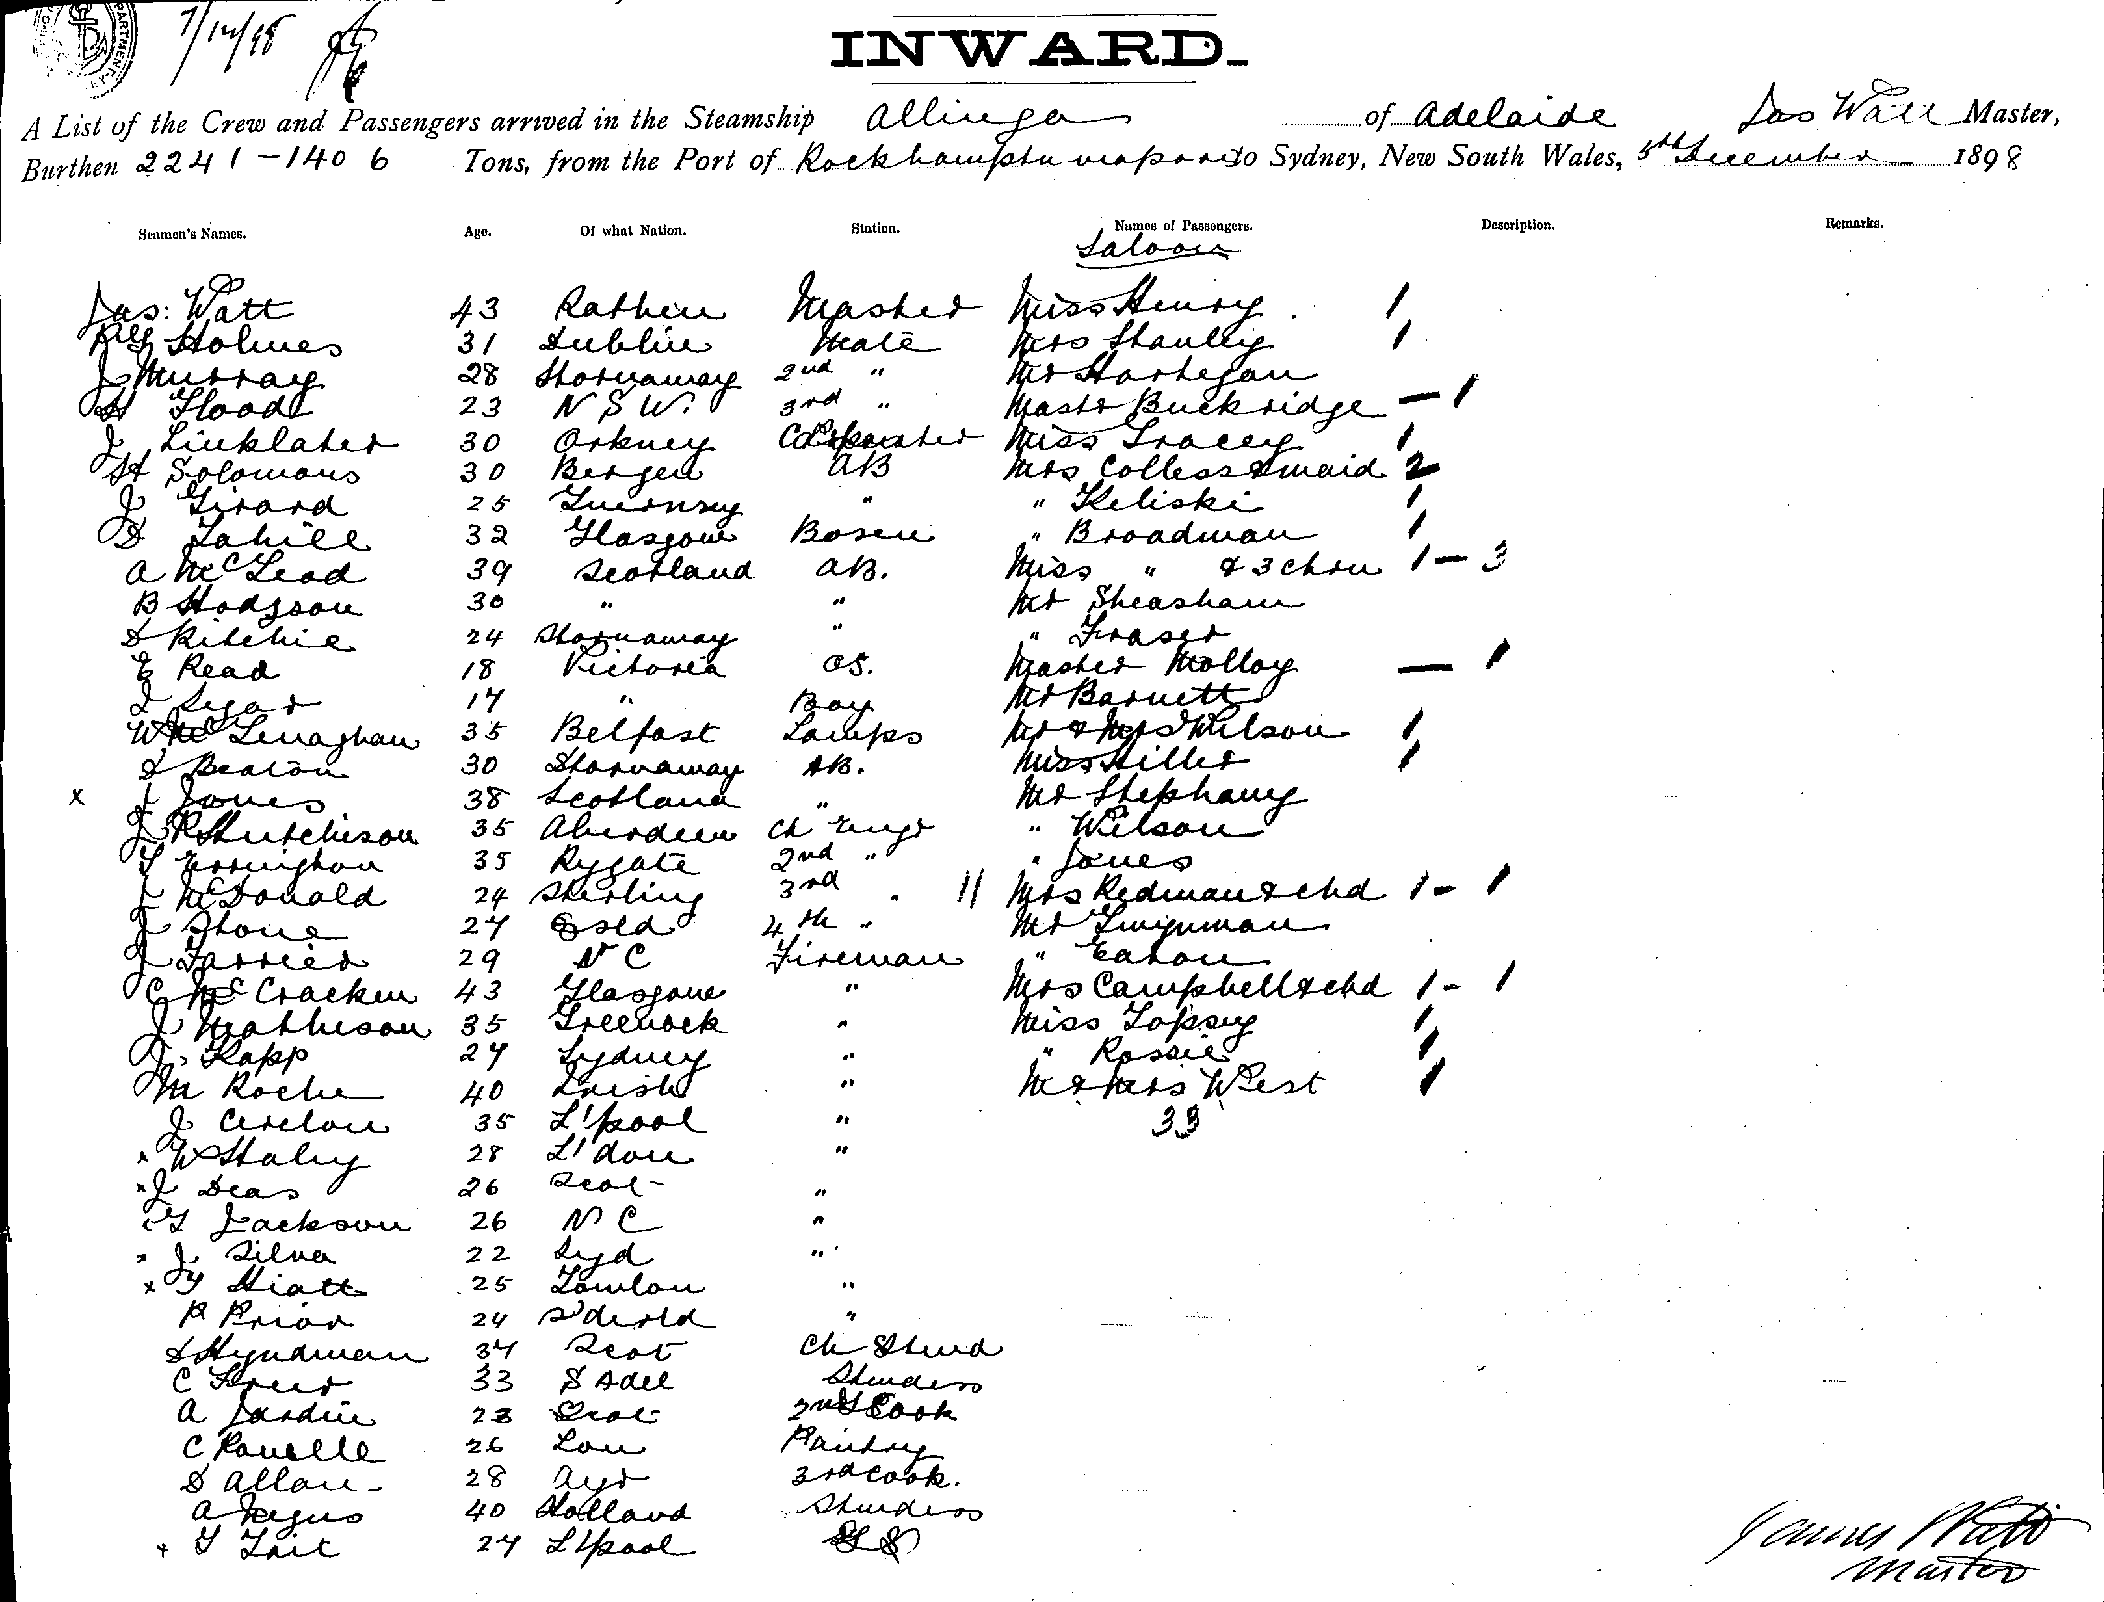 PARTMENT
7/12/98
INWARD.
A List of the Crew and Passengers arrived in the Steamship Allinga of Adelaide Jas Watt Master,
Burthen 2241-1406 Tons, from the Port of Rockhampton via ports to Sydney, New South Wales, 5th December 1898
Seamen's Names. Age. Of what Nation. Station. Names of Passengers. Description. Remarks.
Saloon
Jas: Watt 43 Rathen Master Miss Henry 1
Holmes 31 Dublin Mate Mrs Stanley 1
J Murray 28 Stornaway 2nd " Mr Hartegan
H Flood 23 N S W. 3rd " Mastr Buckridge — 1
J Linklater 30 Orkney Miss Tracey 1
H Solomons 30 Bergen AB Mrs Colless & maid 2
J Girard 25 Guernsey " " Keliski 1
D Lahill 32 Glasgow Bosen " Broadman 1
A McLeod 39 Scotland AB. Miss " & 3 chrn 1 — 3
B Hodgson 30 " " Mr Sheasham
D Ritchie 24 Stornaway " " Fraser
E Read 18 Victoria OS. Master Molloy — 1
17 " Boy Mr Barnett
W McLenaghan 35 Belfast Lamps Mr & Mrs Wilson 1
D Beaton 30 Stornaway AB. Miss Hiller 1
x J Jones 38 Scotland " Mr Stephany
J R Hutchison 35 Aberdeen Ch Engr " Wilson
T Errington 35 Rygate 2nd " " Jones
J McDonald 24 Sterling 3rd " 11 Mrs Redman & chd 1 - 1
J Stone 27 Qsld 4th " Mr Twynman
J Farrier 29 N C Fireman " Eaton
C McCracken 43 Glasgow " Mrs Campbell & chd 1 - 1
J Mathieson 35 Greenock " Miss Topsy 1
J. Kapp 27 Sydney " " Rossie 1
M Roche 40 Irish " Mr & Mrs West 1
J Carlon 35 L'pool " 33
x W Staley 28 L'don "
x J Deas 26 Scot "
x T Jackson 26 N C "
x J Silva 22 Syd "
x T Hiatt 25 "
P Prior 24 S'derld "
D Hyndman 34 Scot Ch Stwd
C 33 S Adel Stwdess
A Jardin 23 Scot 2nd Cook
C Rouelle 26 Lon Pantry
D Allan 28 Ayr 3rd Cook.
A Negus 40 Holland Stwdess
x T Tait 27 L'pool
James Watt
Master